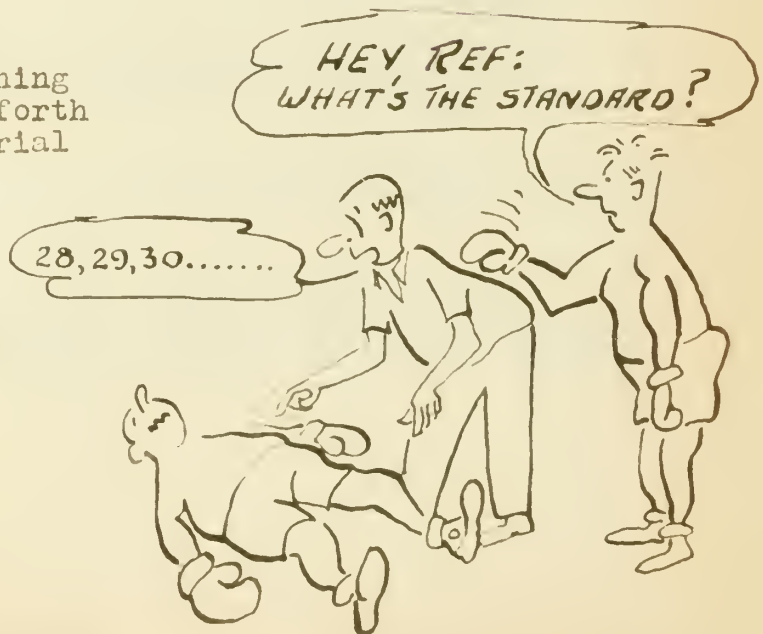 ning
forth
rial
HEY, REF:
WHAT'S THE STANDARD?
28,29,30.......